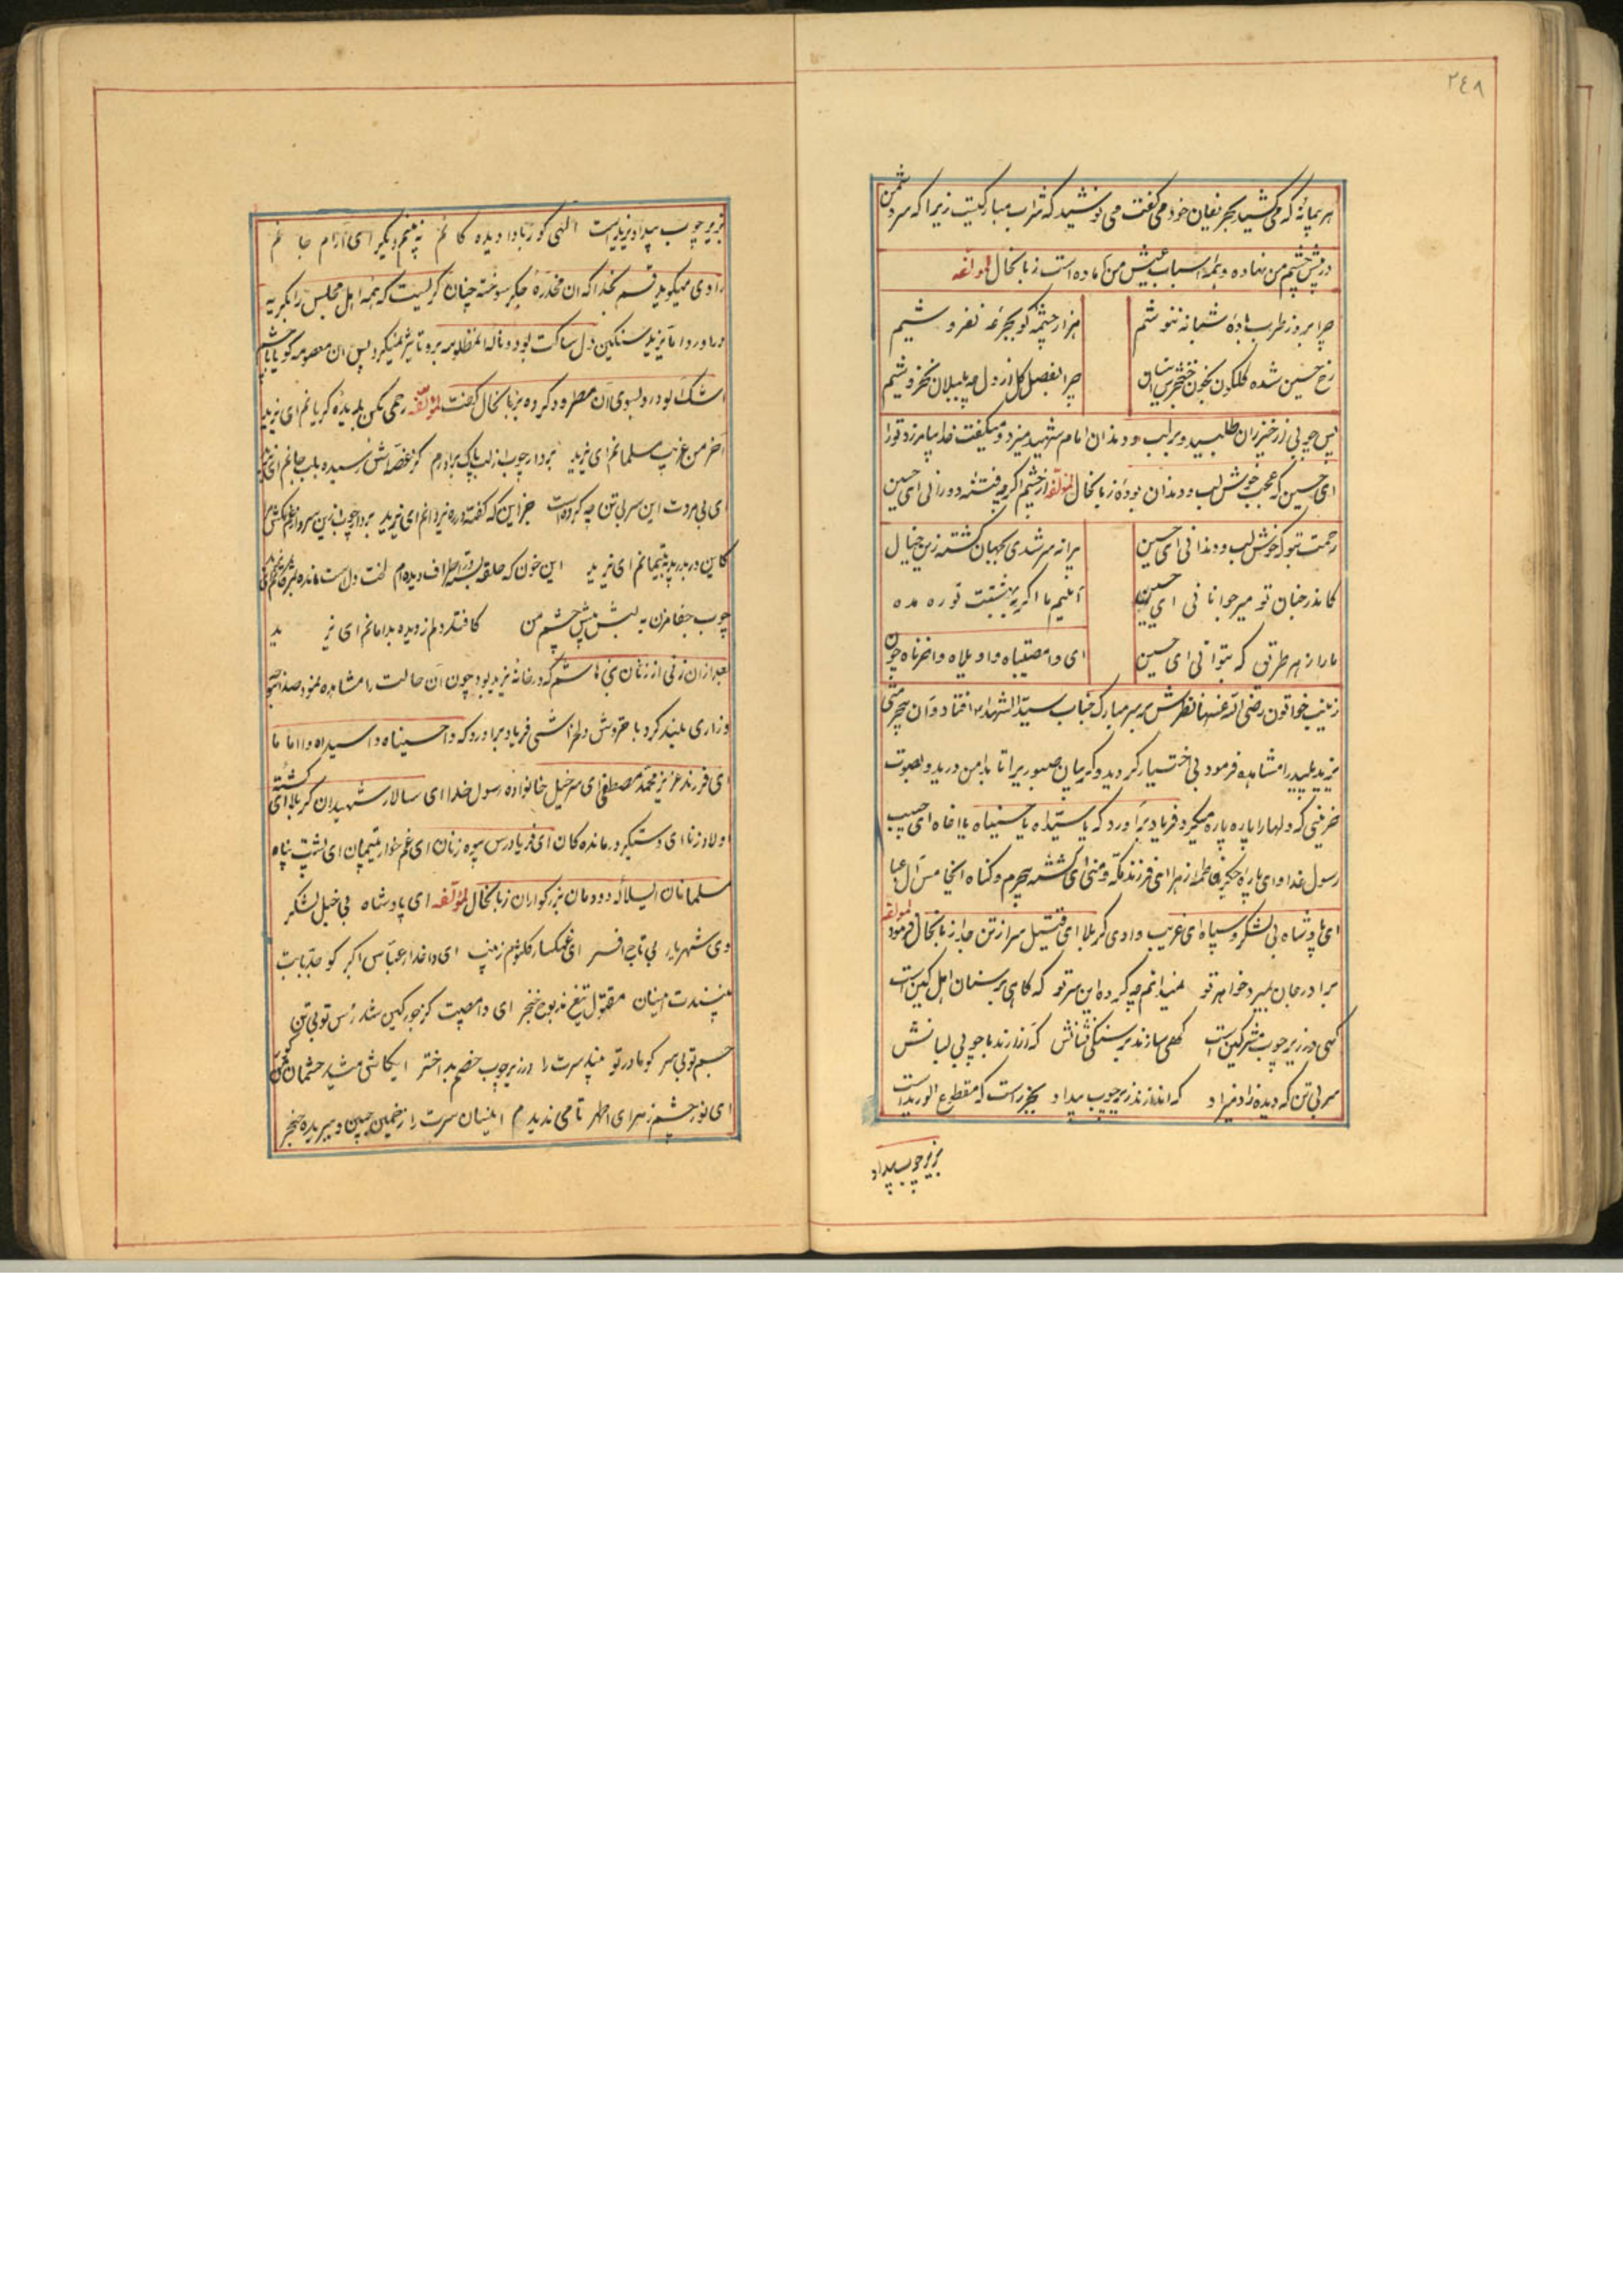 ٢٤٨
هر پیمانهٔ که می کشید بحریفان خود می گفت می نوشید که شراب مبارکیست زیرا که سر دشمن
در پیش چشم من نهاده و همهٔ اسباب عیش من آماده است زبانحال لمؤلفه
چرا بروز طرب بادهٔ شبانه ننوشم هزار چشمه کوثر بجرعه نفروشیم
رخ حسین شده گلگون بخون خنجر چرا بفصل گل از دل چه بلبلان نخروشیم
پس چوبی از خیزران طلبید و بر لب و دندان امام شهید میزد و میگفت خدا بیامرزد تو را
ای حسین که عجب خوش لب و دندان بودهٔ زبانحال لمؤلفه از خشم اگر چه فتنه دورانی ای حسین
رحمت بتو که خوش لب و دندانی ای حسین پیرانه سر شدی بجهان کشته زین خیال
کاندر جنان تو میر جوانانی ای حسین آئیم ما اگر به بهشتت تو ره مده
ما را ز هر طریق که بتوانی ای حسین ای وا مصیبتاه و اویلاه و احزناه چون
زینب خواتون رضی الله عنها نظرش بر سر مبارک جناب سید الشهداء افتاد و آن بیحرمتی
یزید پلید را مشاهده فرمود بی اختیار گردید و گریبان صبوری را تا بدامن درید و بصوت
حزینی که دلها را پاره پاره میکرد فریاد برآورد که یا سیداه یا حسیناه یا اخاه ای حبیب
رسول خدا و ای پاره جگر فاطمه زهرا ای فرزند مکه و منی ای کشته بیجرم و گناه ای خامس آل عبا
ای پادشاه بی لشکر و سپاه ای غریب وادی کربلا ای قتیل سر از تن جدا زبانحال فرمود لمؤلفه
برادر جان بمیرد خواهر تو نمیدانم چه کرده این سر تو که گاهی بر سنان اهل کین است
گهی در زیر چوب مشرکین است گهی سازند بر سنگی نشانش که آزارند با چوبی لبانش
سر بی تن که دیده زاد میراد که اندازند زیر چوب بیداد بجز راست که مقطوع الورید است
بزیر چوب بیداد
بزیر چوب بیداد یزید است الهی کور بادا دیده کانم نه بینم دیگر ای آرام جانم
راوی میگوید قسم بخدا که آن مخدرهٔ جگر سوخته چنان گریست که همه اهل مجلس را بگریه
درآورد اما یزید سنگین دل ساکت بود و ناله المظلومه برو تاثیر نمیکرد پس آن معصومه گویا با چشم
اشک آلود رو بسوی آن مطرود کرده بزبانحال گفت لمؤلفه رحمی بکن بدیدهٔ گریانم ای یزید
آخر من غریب مسلمانم ای یزید بردار چوب از لب پاک برادرم کز غصه اش رسیده بلب جانم ای یزید
ای بی مروت این سر بی تن چه کرده است جز این که گفته در ره یزدانم ای یزید بردار چوب ازین سر و
کاین در بدر پدر یتیمانم ای یزید این خون که حلقه بسته در اطراف دیده ام لخت دل است مانده
چوب جفا مزن به لبش پیش چشم من کافتد دلم ز دیده بدامانم ای یزید
بعد از آن زنی از زنان بنی هاشم که در خانهٔ یزید بود چون آن حالت را مشاهده نمود صدا بنوحه
و زاری بلند کرد با خروش دلخراشی فریاد برآورد که وا حسیناه وا سیداه وا اماما
ای فرزند عزیز محمد مصطفی ای سرخیل خانواده رسول خدا ای سالار شهیدان کربلا ای کشتهٔ
اولاد زنا ای دستگیر درمانده کان ای فریادرس بیوه زنان ای غم خوار یتیمان ای پشت پناه
مسلمانان ای سلاله دودمان بزرگواران زبانحال لمؤلفه ای پادشاه بی خیل لشکر
وی شهریار بی تاج افسر ای غمگسار کلثوم زینب ای داغدار عباس اکبر کو جد بابت
بینندت اینسان مقتول تیغ مذبوح خنجر ای وا مصیبت کز جور کین شد رأس تو بی تن
جسم تو بی سر کو مادر تو بیند سرت را در زیر چوب خصم بد اختر ایکاش میشد چشمان من
ای نور چشم زهرای اطهر تا می ندیدم اینسان سرت را زخمین جبین و ببریده حنجر